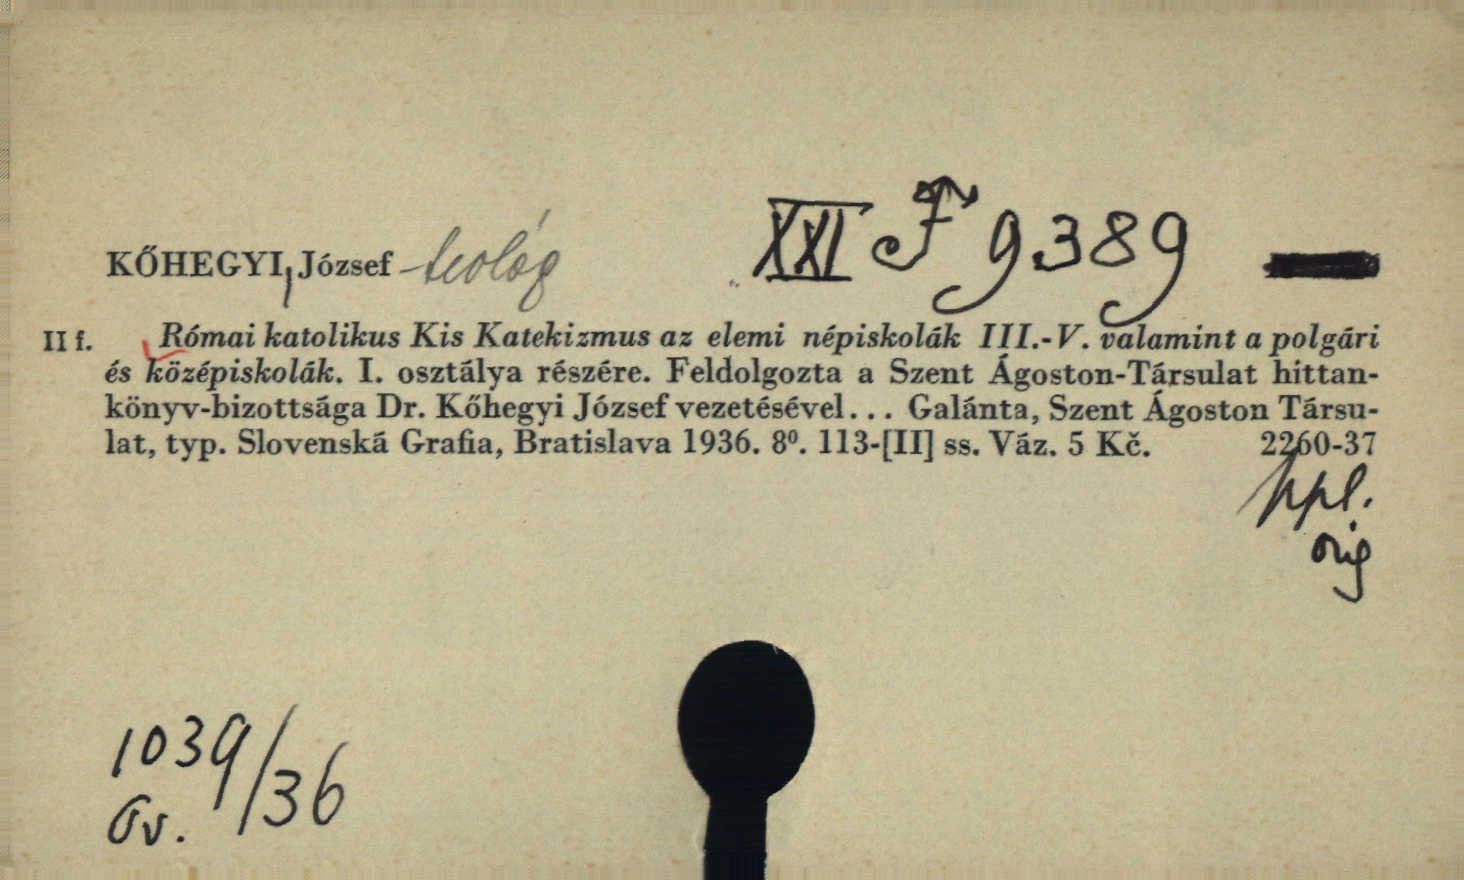 XXI F 9389
KŐHEGYI, József – teológ
II f. Római katolikus Kis Katekizmus az elemi népiskolák III.-V. valamint a polgári
és középiskolák. I. osztálya részére. Feldolgozta a Szent Ágoston-Társulat hittan-
könyv-bizottsága Dr. Kőhegyi József vezetésével... Galánta, Szent Ágoston Társu-
lat, typ. Slovenská Grafia, Bratislava 1936. 8⁰. 113-[II] ss. Váz. 5 Kč. 2260-37
ppl.
orig
1039/36